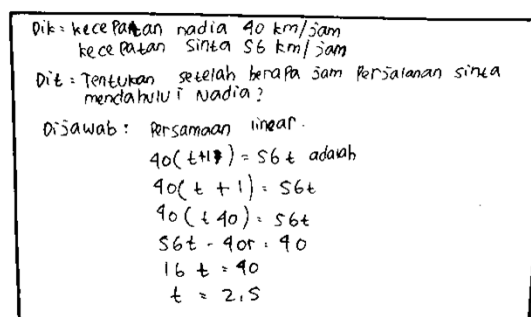 Dik : kecepatan nadia 40 km/jam
kecepatan sinta 56 km/jam
Dit : Tentukan setelah berapa jam Perjalanan sinta
mendahului Nadia?
Dijawab : Persamaan linear.
40(t+1) = 56t adalah
40(t + 1) = 56t
40(t 40) = 56t
56t - 40t = 40
16 t = 40
t = 2,5